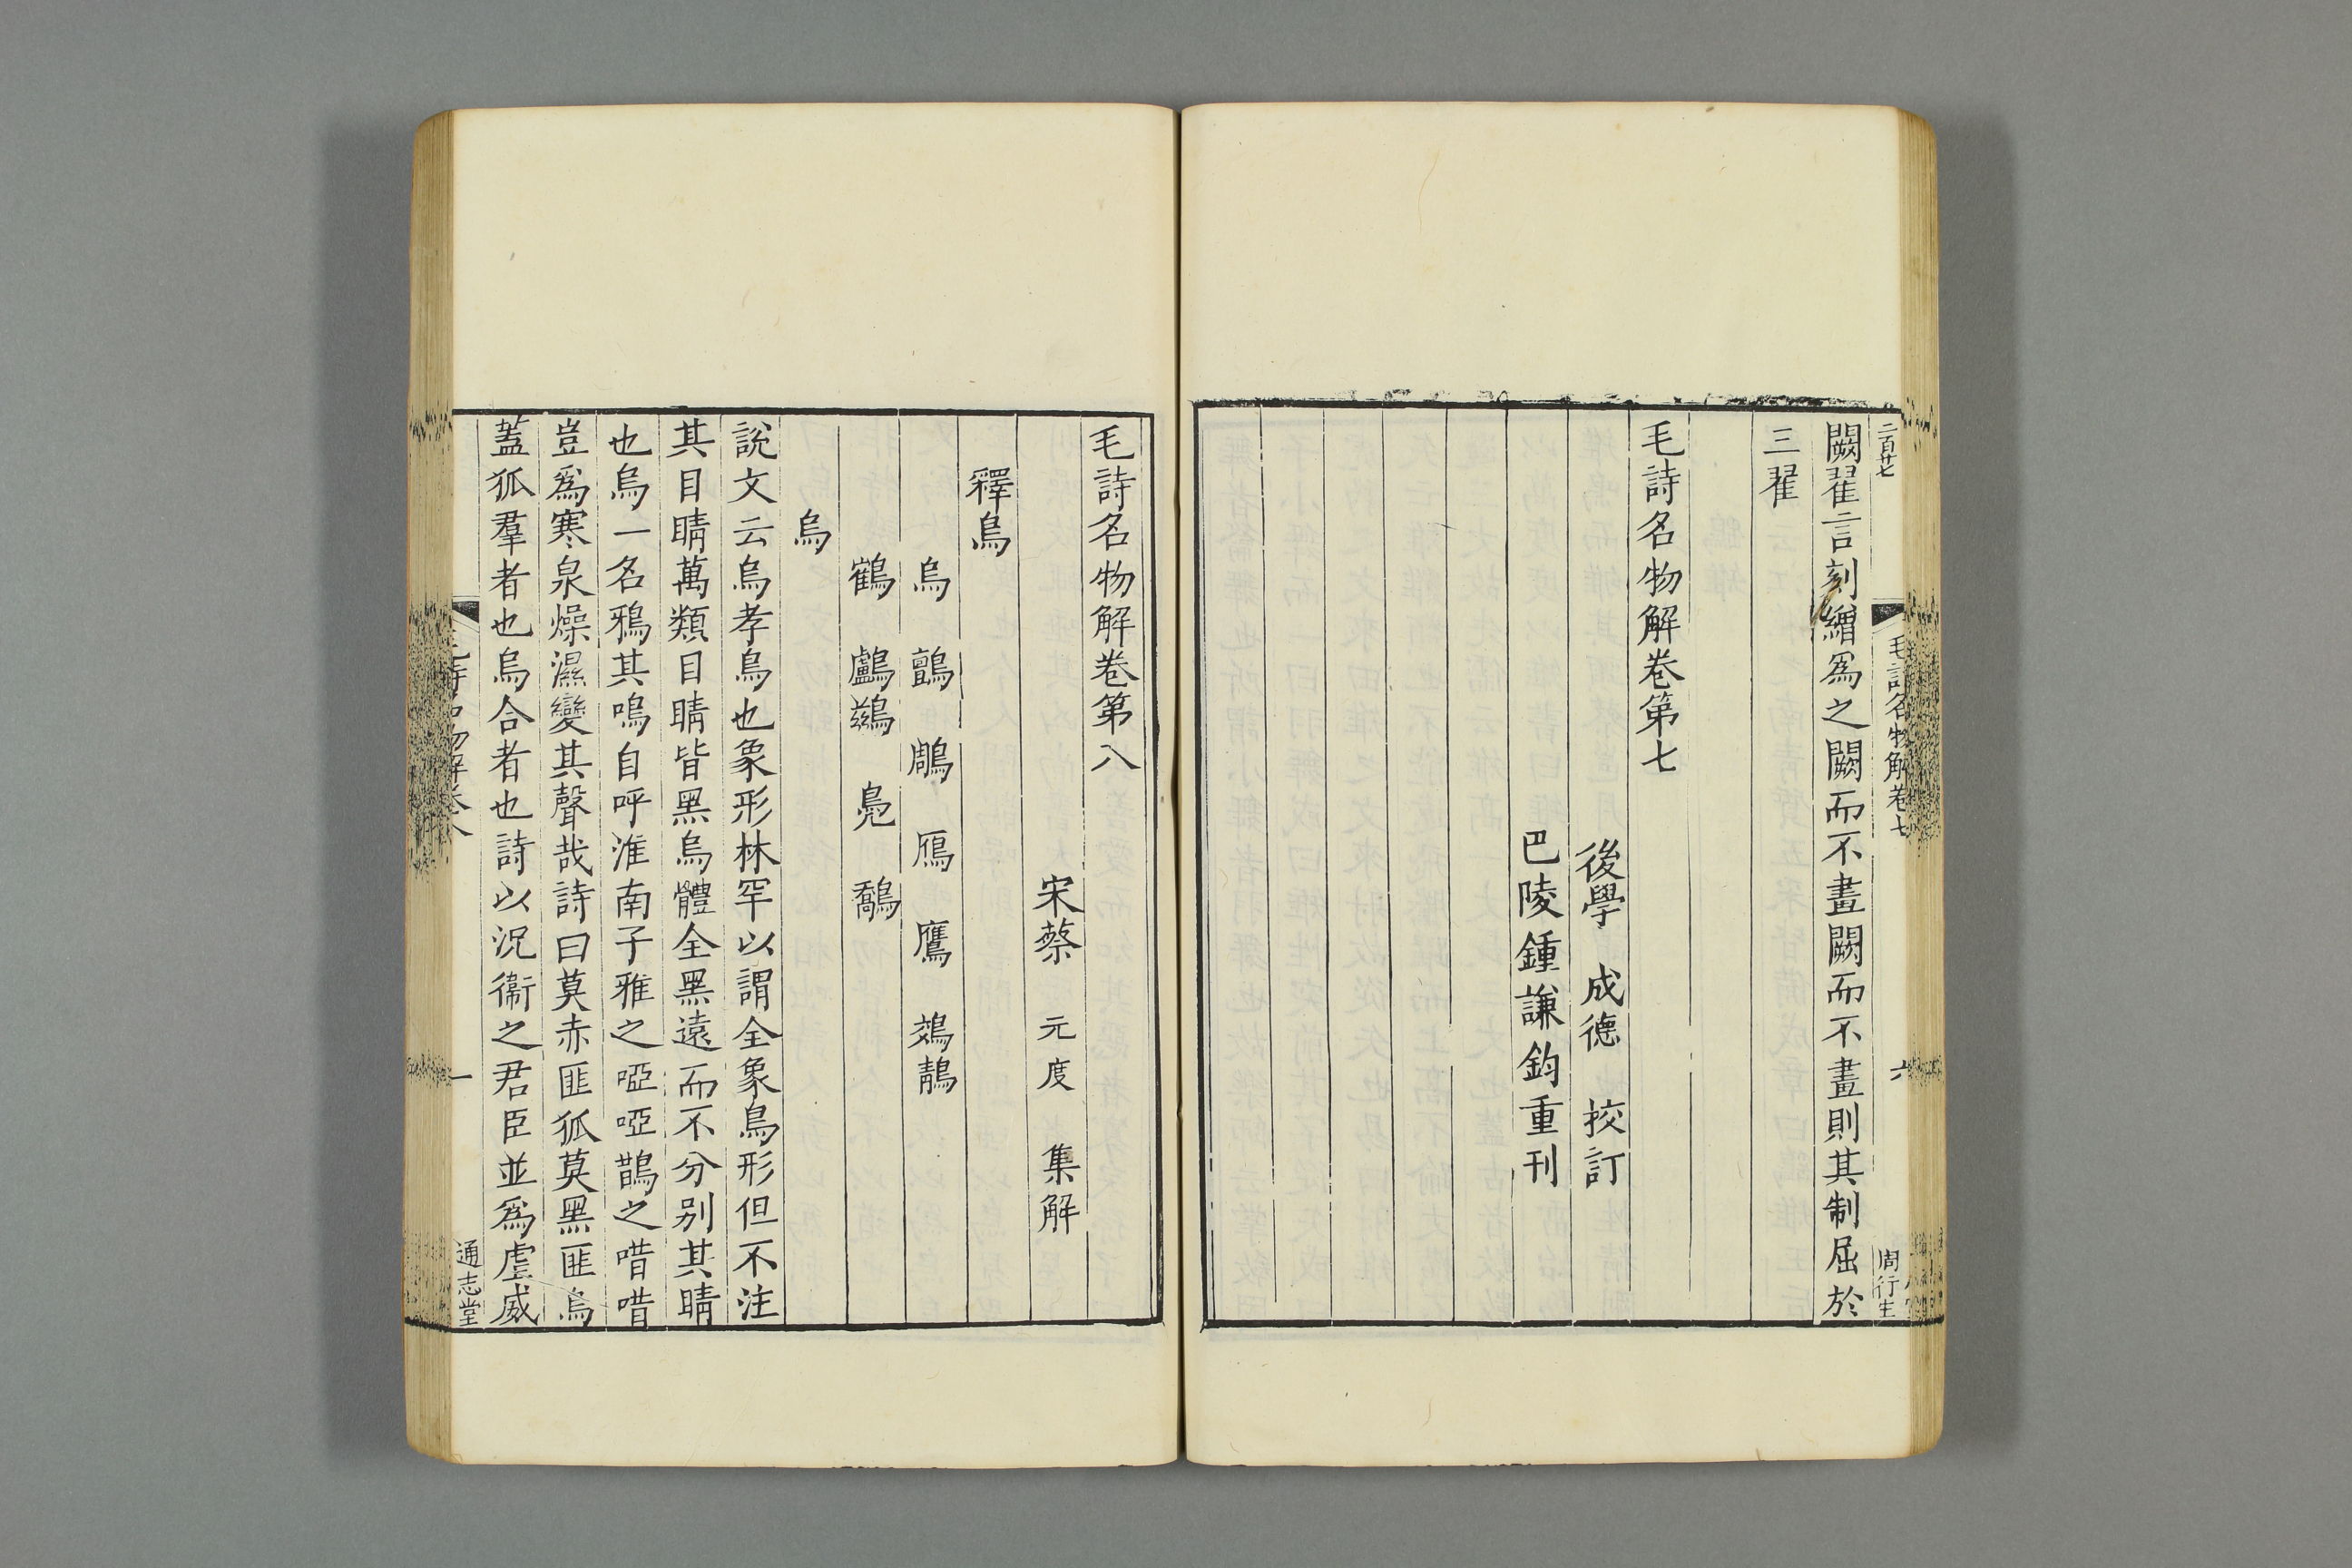 二百廿七
毛詩名物解卷七
六
周行生
闕翟言刻繒爲之闕而不畫闕而不畫則其制屈於
三翟
毛詩名物解卷第七
後學 成德 挍訂
巴陵鍾謙鈞重刊
毛詩名物解卷第八
宋蔡 元度 集解
釋鳥
烏 鸇 鵰 鴈 鷹 鵁鶄
鶴 鸕鷀 鳧 鷮
烏
說文云烏孝鳥也象形林罕以謂全象鳥形但不注
其目睛萬類目睛皆黑烏體全黑遠而不分别其睛
也烏一名鴉其鳴自呼淮南子雅之啞啞鵲之唶唶
豈爲寒泉燥濕變其聲哉詩曰莫赤匪狐莫黑匪烏
蓋狐羣者也烏合者也詩以況衞之君臣並爲虐威
毛詩名物解卷八
一
通志堂